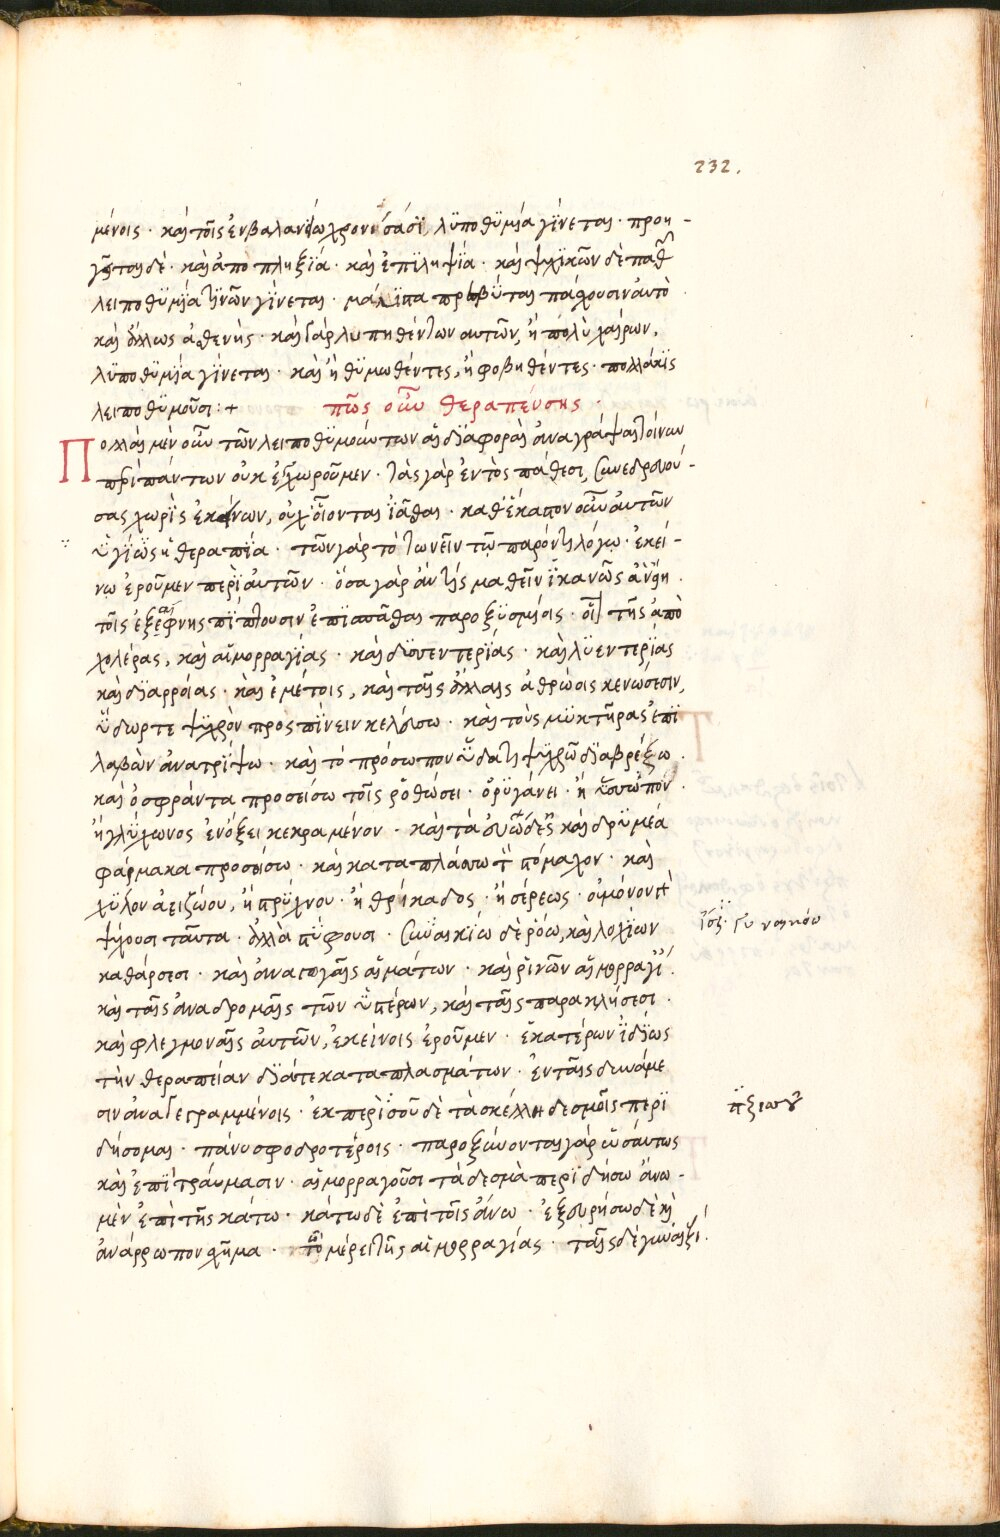 232.
μένοις · καὶ τοῖς ἐν βαλανίω χρονίσασϊ, λϋποθϋμία γίνεται · προη-
γεται δὲ · καὶ ἀποπληξϊα · καὶ ἐπϊληψϊα · καὶ ψϋχϊκῶν δὲ παθ
λειποθϋμΐα τϊνῶν γΐνεται · μάλϊστα πρεσβύται πάσχουσιν αυτὸ
καὶ ἄλλως ἀσθενὴς · καὶ γὰρ λυπηθέντων αυτῶν, ἢ πολὺ χαίρων,
λϋποθϋμΐα γΐνεται · καὶ ἢ θϋμωθέντες, ἢ φοβηθέντες · πολλάκϊς
λειποθϋμοῦσι : +
πῶς οὖν θεραπεύσης ·
Πολλαὶ μὲν οὖν τῶν λειποθϋμούντων αἱ δϊαφοραὶ ἀναγράψαι τοίνυν
περὶ πάντων οὐκ ἐγχωροῦμεν · τὰς γὰρ ἐντὸς πάθεσι, συνεδρευού-
σας χωρὶς ἐκείνων, οὐχ οἴονται ϊᾶσθαι · καθ ἕκαστον οὖν αὐτῶν
ὑγϊῶς ἡ θεραπεία · τῶν γὰρ τὸ τωνεῖν τῶ παρόντι λόγω · ἐκεί-
νω ἐροῦμεν περὶ αὐτῶν · ὅσα γὰρ ἄν τὶς μαθεῖν ἱκανῶς ἀνύση ·
τοῖς ἐξαίφνης πίπτουσιν ἐπϊσπᾶσθαι παροξϋσμοῖς · οἷ τῆς ἀπὸ
χολέρας, καὶ αἱμορραγίας · καὶ δϋσεντερϊας · καὶ λϋεντερϊας
καὶ δϊαρροίας · καὶ ἐμέτοις, καὶ ταῖς ἄλλαις ἀθρώοις κενώσεσιν,
ὕδωρ τε ψϋχρὸν πρὸς πϊνειν κελεύσω · καὶ τοὺς μϋκτῆρας ἐπϊ
λαβὼν ἀνατρίψω · καὶ τὸ πρόσωπον ὕδατι ψϋχρῶ δϊαβρέξω ·
καὶ ὀσφράντα προσείσω τοῖς ρόθωσει · ὀρϋγάνει · ἢ ὕσσωπον ·
ἢ γλΰχωνος ἐν ὄξει κεκραμένον · καὶ τὰ εὐώδες καὶ δρϋμέα
φάρμακα προσοίσω · καὶ καταπλάσσω τ στόμαχον · καὶ
χϋλὸν ἀειζώου, ἢ στρϋχνου · ἢ θρίκαδος · ἢ σέρεως · οὐ μόνον
ψϋχουσι ταῦτα · ἀλλὰ στϋφουσι · γϋναικίω δὲ ρόω, καὶ λοχΐων
καθάρσεσι · καὶ ἀναγωγαῖς αἱμάτων · καὶ ρϊνῶν αἱμορραγί
καὶ ταῖς ἀναδρομαῖς τῶν ὑστέρων, καὶ ταῖς παρακλήσεσι ·
καὶ φλεγμοναῖς αὐτῶν, ἐκείνοις ἐροῦμεν · ἑκατέρων ϊδΐως
τὴν θεραπείαν δϊά τε καταπλασμάτων · ἐν ταῖς δυνάμε
σιν ἀναγεγραμμένοις · ἐκ περϊσοῦ δὲ τὰ σκέλλη δεσμοῖς περϊ
δήσομαι · πάνυ σφοδροτέροις · παροξύνονται γὰρ ὡσάυτως
καὶ ἐπϊ τράυμασιν · αἱμορραγοῦσι τὰ δεσμὰ περϊδήσω ἄνω-
μὲν ἐπὶ τῆς κάτω · κάτω δὲ ἐπὶ τοῖς ἄνω · ἐξευρήσω δὲ καὶ
ἀνάρροπον σχῆμα · τῶ μέρει τῆς αἱμορραγίας · ταῖς δὲ γυναιξὶ ·
ἴσ γυναικίω
πϊεξιωσ